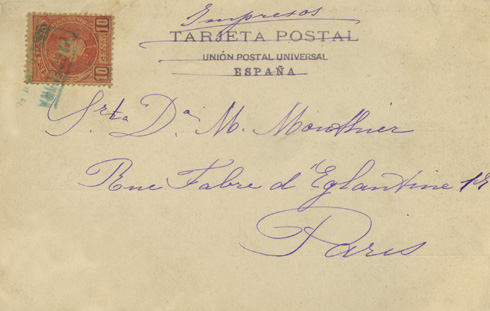 Impresos
TARJETA POSTAL
UNIÓN POSTAL UNIVERSAL
ESPAÑA
10 10
Srta Da M. Mouthier
Rue Fabre d'Eglantine
Paris